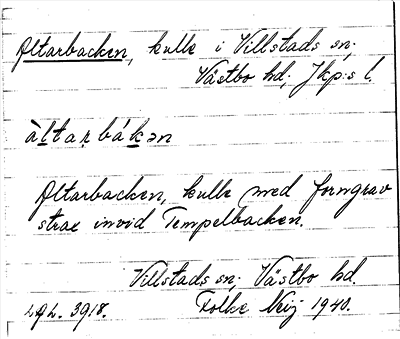 Altarbacken, kulle i Villstads sn;
Västbo hd; Jkp:s l.
àltarbákən
Altarbacken, kulle med forngrav
strax invid Tempelbacken.
Villstads sn; Västbo hd.
Folke Neij 1940.
3918.